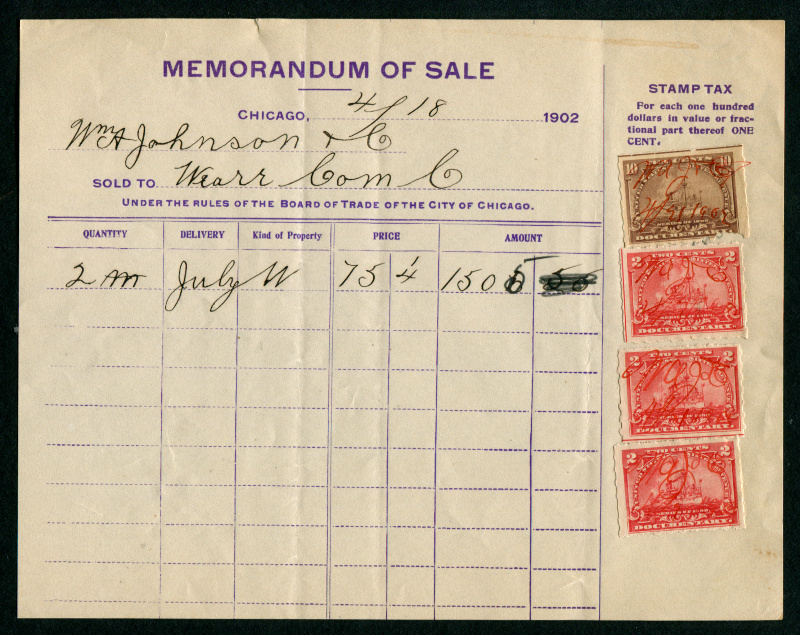 MEMORANDUM OF SALE
CHICAGO, 4/18 1902
Wm A Johnson & C
SOLD TO Wearr Com C
UNDER THE RULES OF THE BOARD OF TRADE OF THE CITY OF CHICAGO.
QUANTITY DELIVERY Kind of Property PRICE AMOUNT
2 m July W 75 1/4 1505
STAMP TAX
For each one hundred
dollars in value or frac-
tional part thereof ONE
CENT.
10 10
DOCUMENTARY
2 TWO CENTS 2
SERIES OF 1898
DOCUMENTARY.
2 TWO CENTS 2
SERIES OF 1898
DOCUMENTARY.
2 TWO CENTS 2
SERIES OF 1898
DOCUMENTARY.